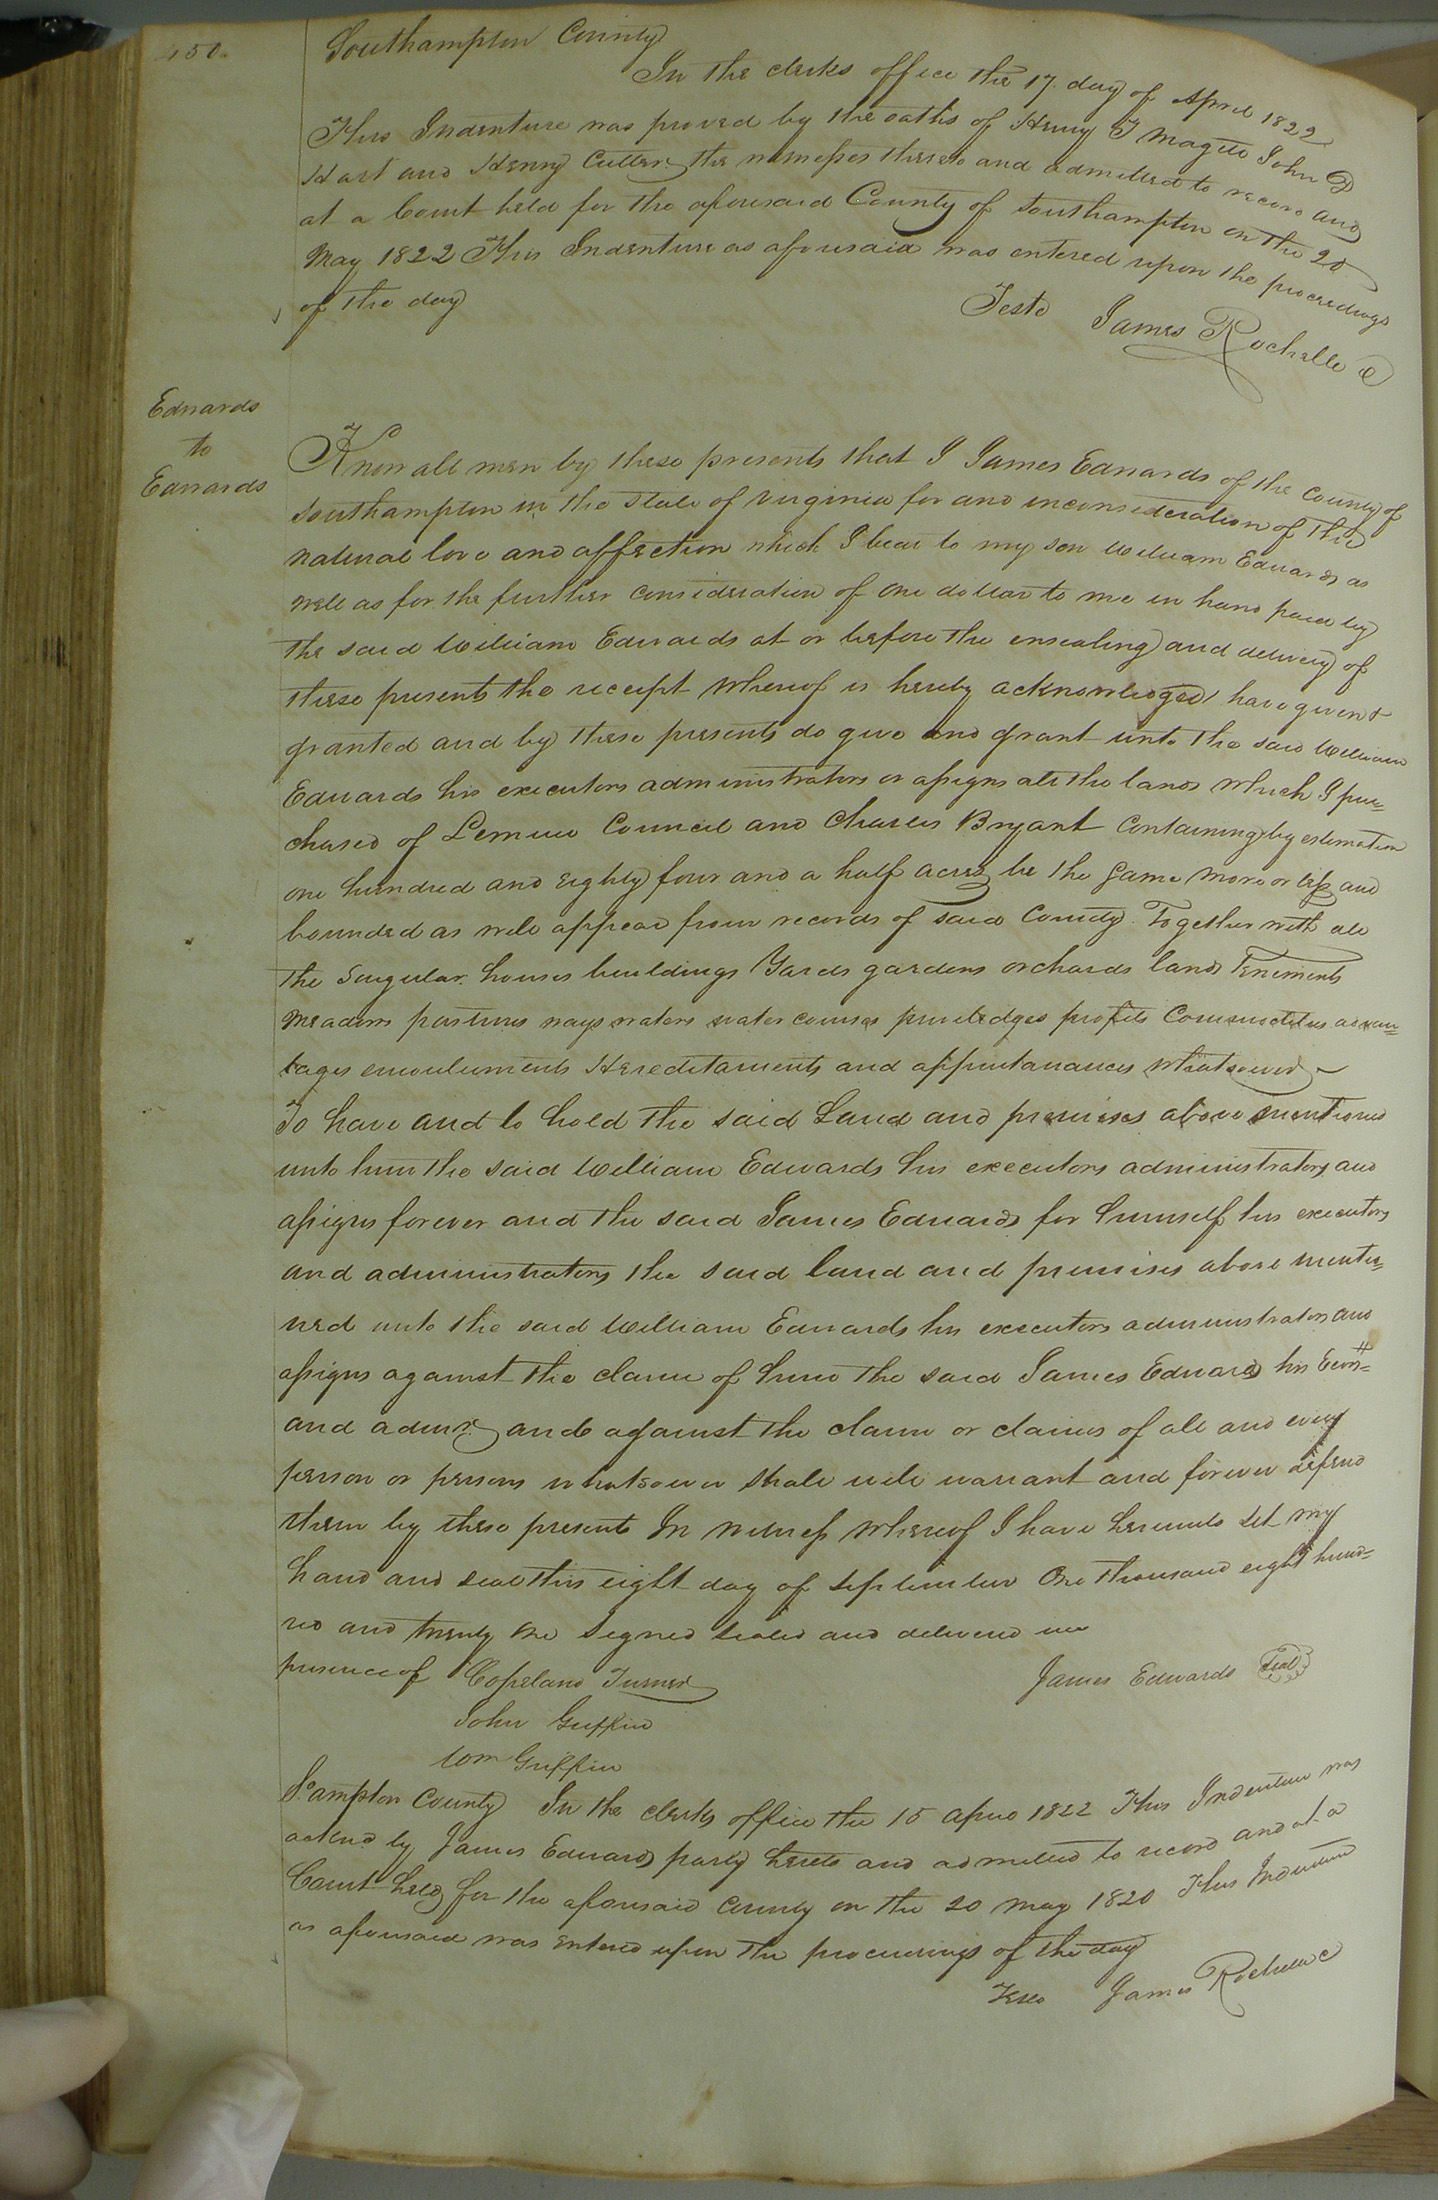 450.
Southampton County
In the clerks office the 17. day of April 1822
This Indenture was proved by the oaths of Henry J Magett John D
Hart and Henry Cutler the witnesses thereto and admitted to record and
at a Court held for the aforesaid County of Southampton on the 20
May 1822 This Indenture as aforesaid was entered upon the proceedings
of the day
Teste James Rochelle C
Edwards
to
Edwards
Know all men by these presents that I James Edwards of the County of
Southampton in the State of Virginia for and inconsideration of the
natural love and affection which I bear to my son William Edwards as
well as for the further consideration of one dollar to me in hand paid by
the said William Edwards at or before the ensealing and delivery of
these presents the receipt whereof is hereby acknowledged have given &
granted and by these presents do give and grant unto the said William
Edwards his executors administrators or assigns all the lands which I pur=
chased of Lemuel Council and Charles Bryant Containing by estimation
one hundred and eighty four and a half acres be the same more or less and
bounded as will appear from records of said County. Together with all
the Singular. houses buildings Yards gardens orchards lands Tenements
Meadows pastures ways waters water courses priviledges profits Commodities advan=
tages emoluments Hereditaments and appurtanances whatsoever
To have and to hold the said Land and premises above mentioned
unto him the said William Edwards his executors administrators and
assigns forever and the said James Edwards for himself his executors
and administrators the said land and premises above mentio=
ned unto the said William Edwards his executors administrators and
assigns against the claim of him the said James Edwards his
and admrs and against the claim or claims of all and every
person or persons whatsoever shall will warrant and forever defend
them by these presents In Witness whereof I have hereunto set my
hand and seal this eight day of September One thousand eight hund=
red and twenty one Signed Sealed and delivered in
presence of Copeland Turner James Edwards Seal
John Griffin
Wm Griffin
So.ampton County In the clerks office the 15 April 1822 This Indenture was
ackend by James Edwards party hereto and admitted to record and at a
Court held for the aforesaid County on the 20 May 1820 This Indenture
as aforesaid was entered upon the proceedings of the day
Teste James Rochelle C